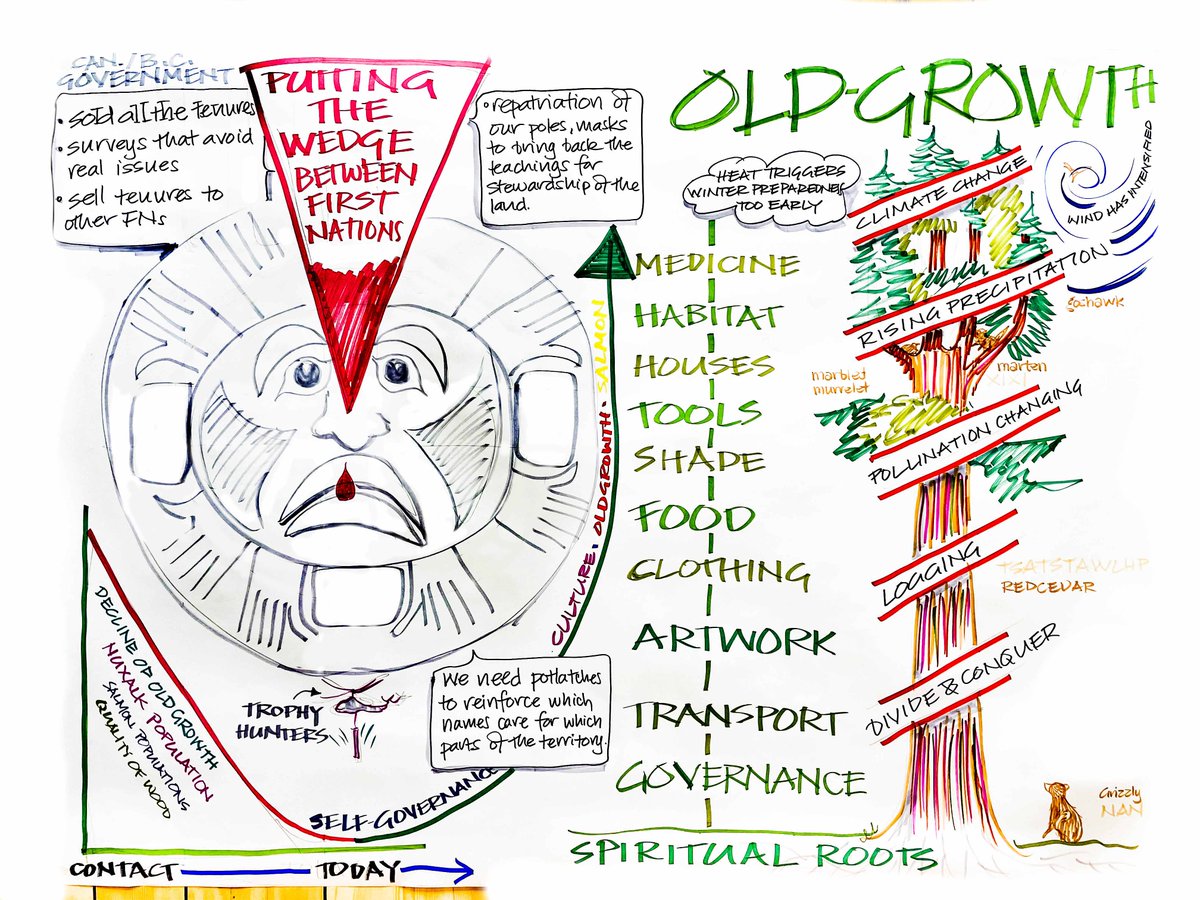 CAN./B.C.
GOVERNMENT
• sold all the tenures
• surveys that avoid
real issues
• sell tenures to
other FNs
PUTTING
THE
WEDGE
BETWEEN
FIRST
NATIONS
• repatriation of
our poles, masks
to bring back the
teachings for
stewardship of the
land.
DECLINE OF OLD GROWTH
NUXALK POPULATION
SALMON POPULATIONS
QUALITY OF WOOD
TROPHY
HUNTERS
We need potlatches
to reinforce which
names care for which
parts of the territory.
SELF-GOVERNANCE
CULTURE • OLDGROWTH • SALMON
CONTACT
TODAY
OLD-GROWTH
HEAT TRIGGERS
WINTER PREPAREDNESS
TOO EARLY
MEDICINE
HABITAT
HOUSES
TOOLS
SHAPE
FOOD
CLOTHING
ARTWORK
TRANSPORT
GOVERNANCE
SPIRITUAL ROOTS
CLIMATE CHANGE
WIND HAS INTENSIFIED
RISING PRECIPITATION
goshawk
marbled
murrelet
marten
POLLINATION CHANGING
LOGGING
TSATSTAWLHP
REDCEDAR
DIVIDE & CONQUER
Grizzly
NAN